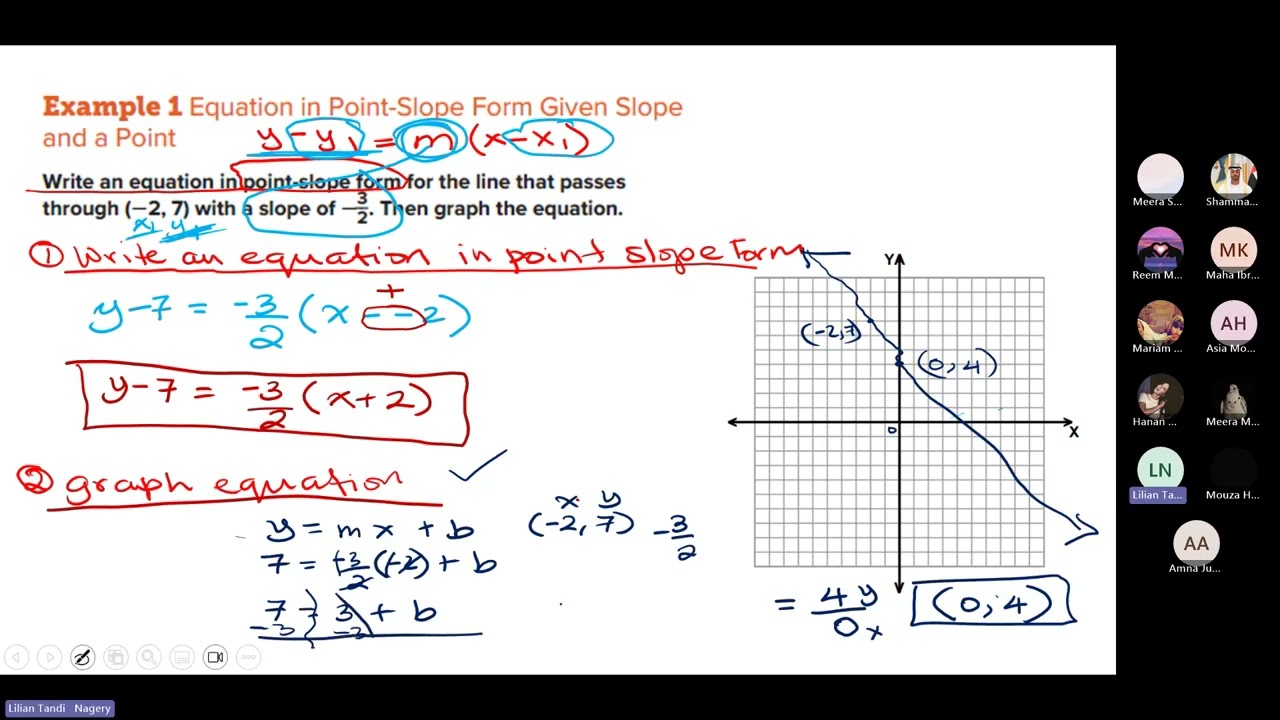 Example 1 Equation in Point-Slope Form Given Slope
and a Point
y - y₁ = m (x - x₁)
Write an equation in point-slope form for the line that passes
through (−2, 7) with a slope of −3/2. Then graph the equation.
x₁, y₁
① Write an equation in point slope Form
y - 7 = -3/2 (x - - 2)
+
y - 7 = -3/2 (x + 2)
② graph equation
y = mx + b
7 = -3/2 (-2) + b
7 = 3 + b
-3 -3
x y
(-2, 7) -3/2
Y
(-2, 7)
(0, 4)
0
X
= 4 y / 0 x
(0, 4)
Meera S...
Shamma...
Reem M...
MK
Maha Ibr...
Mariam ...
AH
Asia Mo...
Hanan ...
Meera M...
LN
Lilian Ta...
Mouza H...
AA
Amna Ju...
Lilian Tandi Nagery